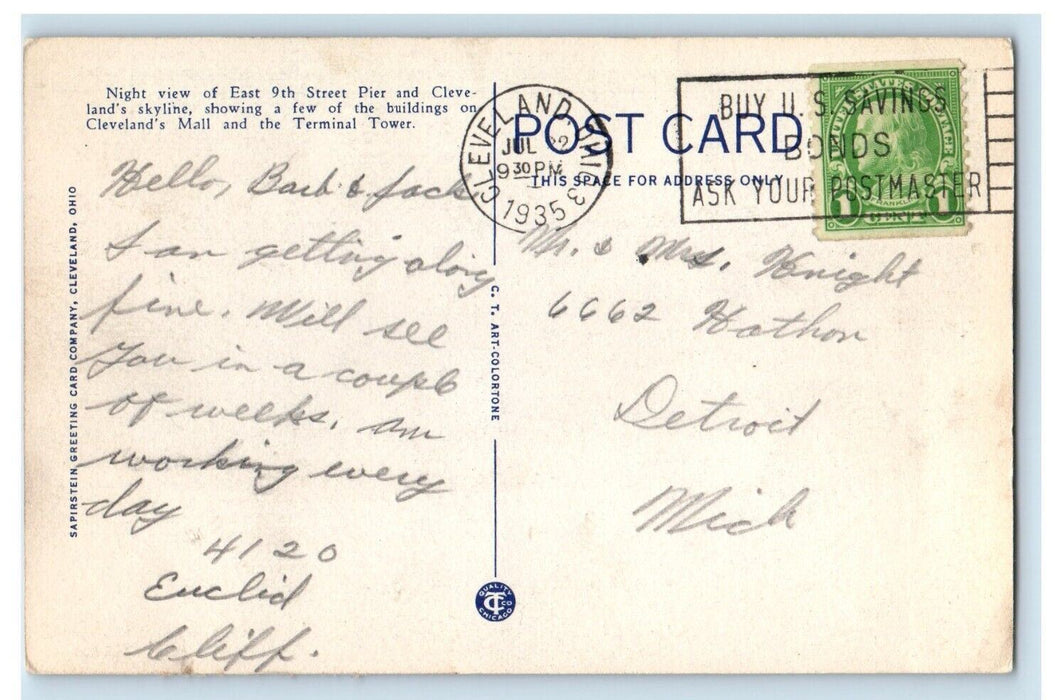 Night view of East 9th Street Pier and Cleve-
land's skyline, showing a few of the buildings on
Cleveland's Mall and the Terminal Tower.
POST CARD
THIS SPACE FOR ADDRESS ONLY
CLEVELAND, OHIO
JUL 22
9 30 PM
1935
3
BUY U.S. SAVINGS
BONDS
ASK YOUR POSTMASTER
FRANKLIN
1 CENT 1
Hello, Barb & Jack
I am getting along
fine. Will see
You in a couple
of weeks. am
working every
day
4120
Euclid
Cliff.
Mr. & Mrs. Knight
6662 Hathon
Detroit
Mich
SAPIRSTEIN GREETING CARD COMPANY, CLEVELAND, OHIO
C. T. ART-COLORTONE
QUALITY
CT CO
CHICAGO